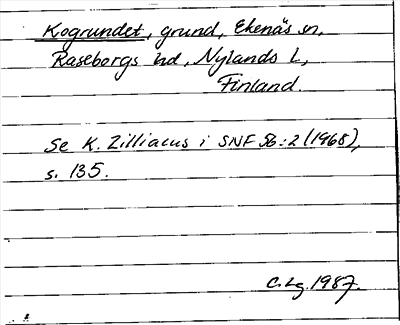 Kogrundet, grund, Ekenäs sn,
Raseborgs hd, Nylands l,
Finland.
Se K. Zilliacus i SNF 56:2 (1968),
s. 135.
C. Lg. 1987.